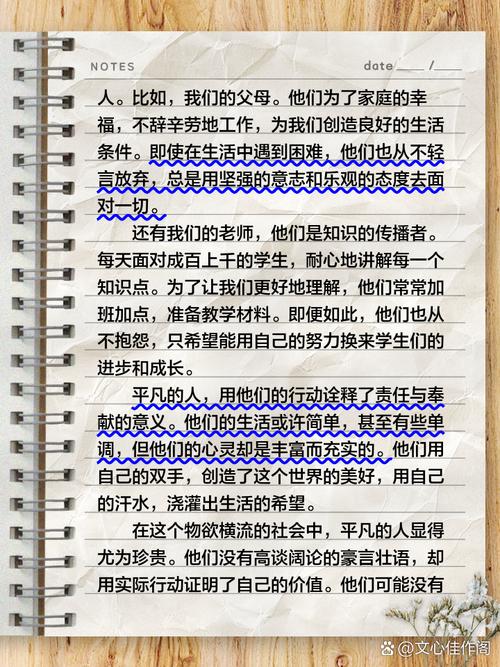 NOTES
date____/____
人。比如，我们的父母。他们为了家庭的幸
福，不辞辛劳地工作，为我们创造良好的生活
条件。即使在生活中遇到困难，他们也从不轻
言放弃，总是用坚强的意志和乐观的态度去面
对一切。
还有我们的老师，他们是知识的传播者。
每天面对成百上千的学生，耐心地讲解每一个
知识点。为了让我们更好地理解，他们常常加
班加点，准备教学材料。即便如此，他们也从
不抱怨，只希望能用自己的努力换来学生们的
进步和成长。
平凡的人，用他们的行动诠释了责任与奉
献的意义。他们的生活或许简单，甚至有些单
调，但他们的心灵却是丰富而充实的。他们用
自己的双手，创造了这个世界的美好，用自己
的汗水，浇灌出生活的希望。
在这个物欲横流的社会中，平凡的人显得
尤为珍贵。他们没有高谈阔论的豪言壮语，却
用实际行动证明了自己的价值。他们可能没有
@文心佳作阁